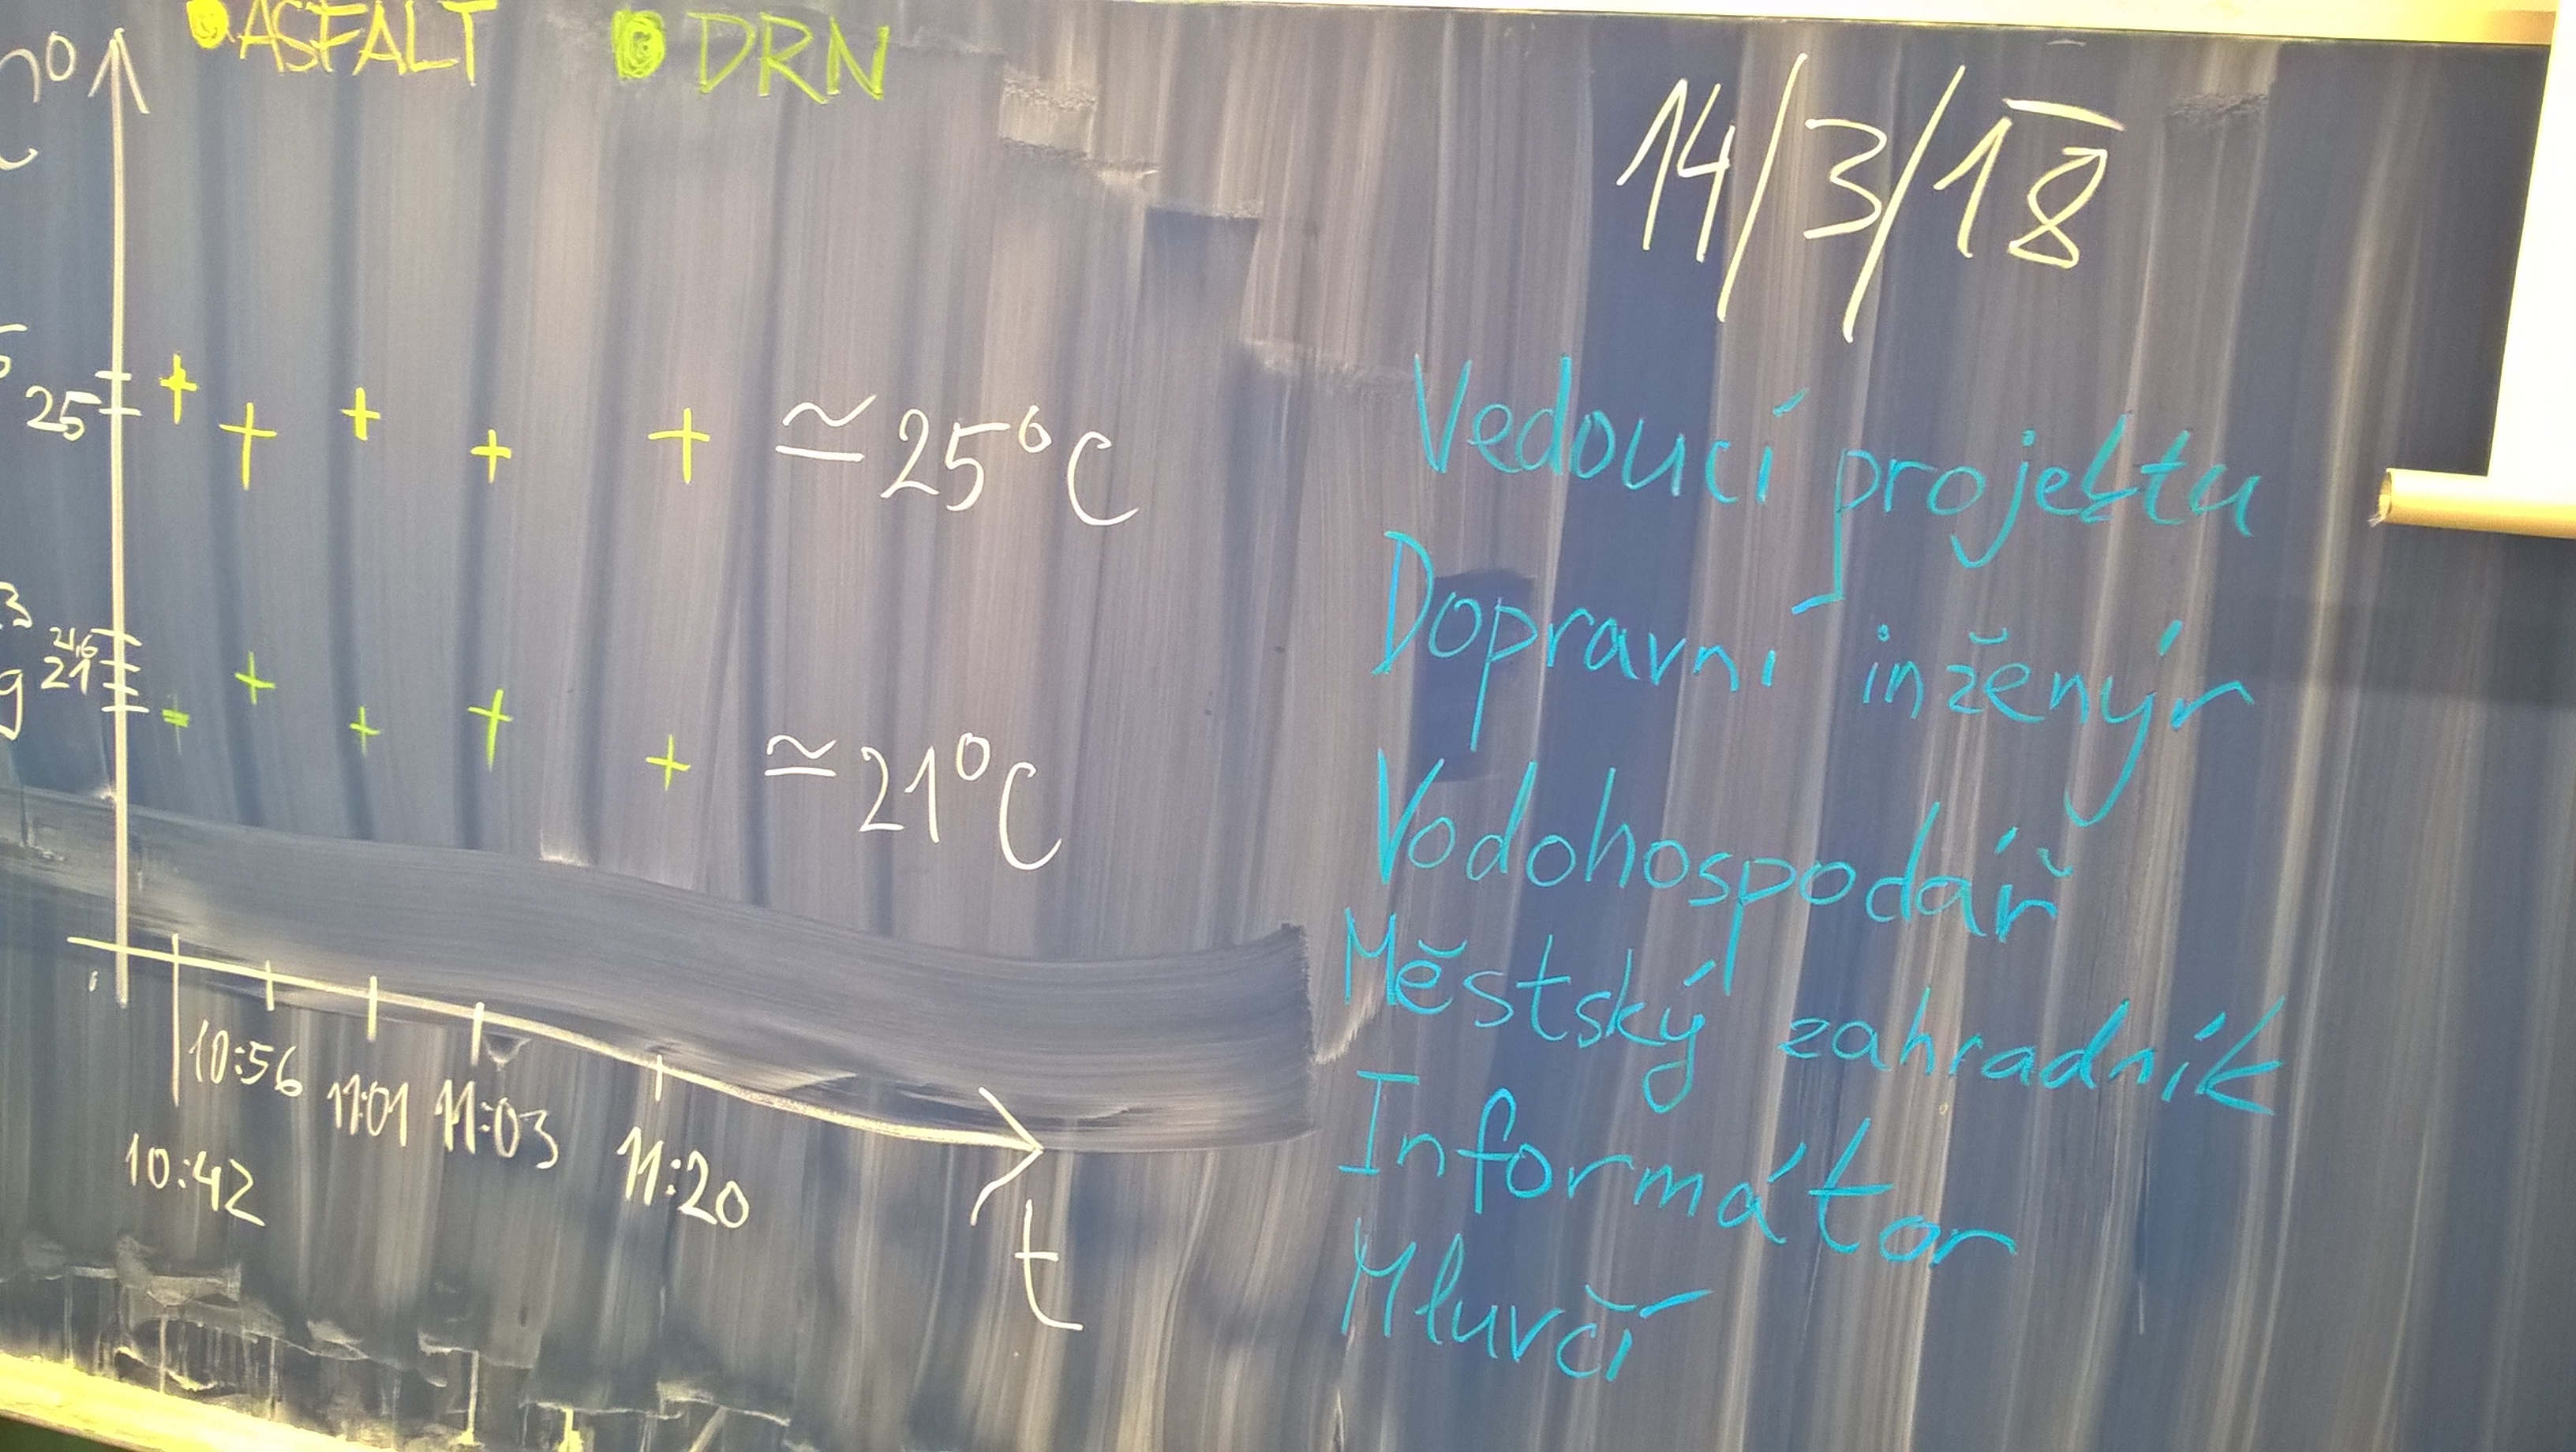 ASFALT DRN
14/3/18
25
≅ 25°C
21,6
21
≅ 21°C
10:42 10:56 11:01 11:03 11:20
t
Vedoucí projektu
Dopravní inženýr
Vodohospodář
Městský zahradník
Informátor
Mluvčí